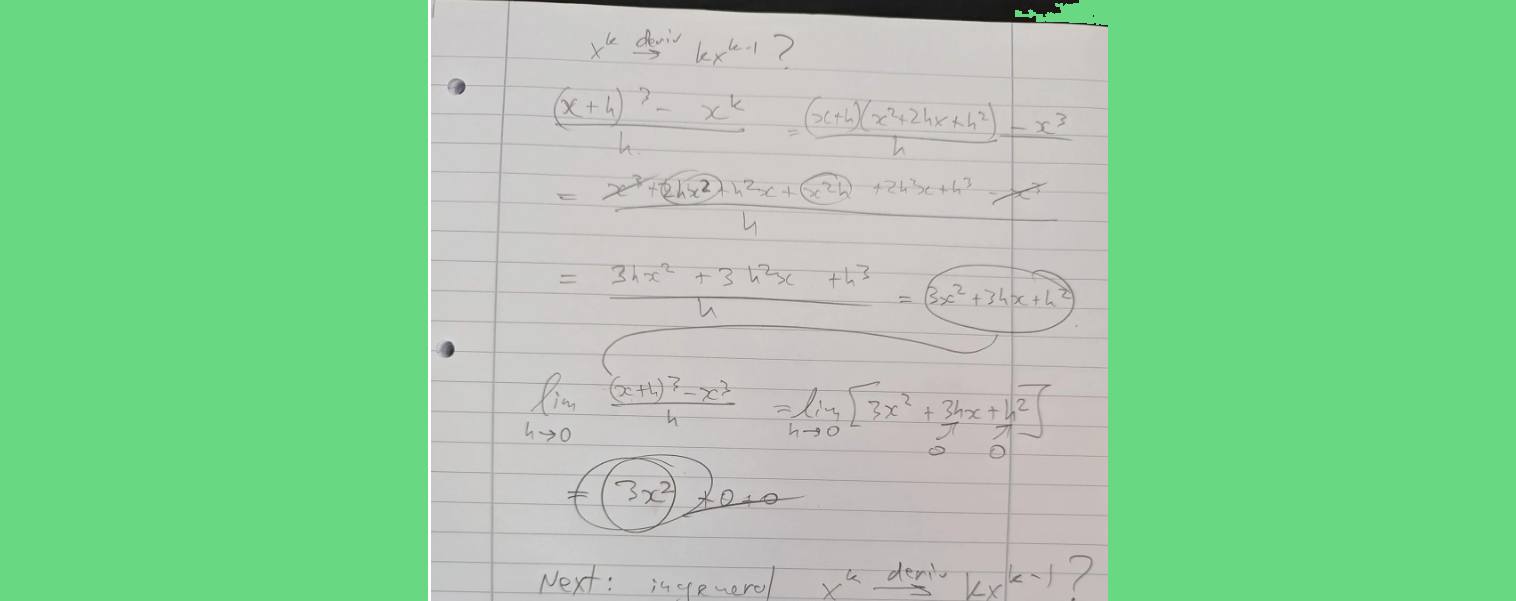 x^k deriv→ kx^{k-1} ?
((x+h)^3 - x^k)/h = ((x+h)(x^2+2hx+h^2) - x^3)/h
= (x^3+2hx^2+h^2x+x^2h+2h^2x+h^3-x^3)/h
= (3hx^2 + 3h^2x + h^3)/h = 3x^2+3hx+h^2
lim h→0 ((x+h)^3-x^3)/h = lim h→0 [3x^2+3hx+h^2]
0 0
= 3x^2 +0+0
Next: in general x^k deriv→ kx^{k-1} ?